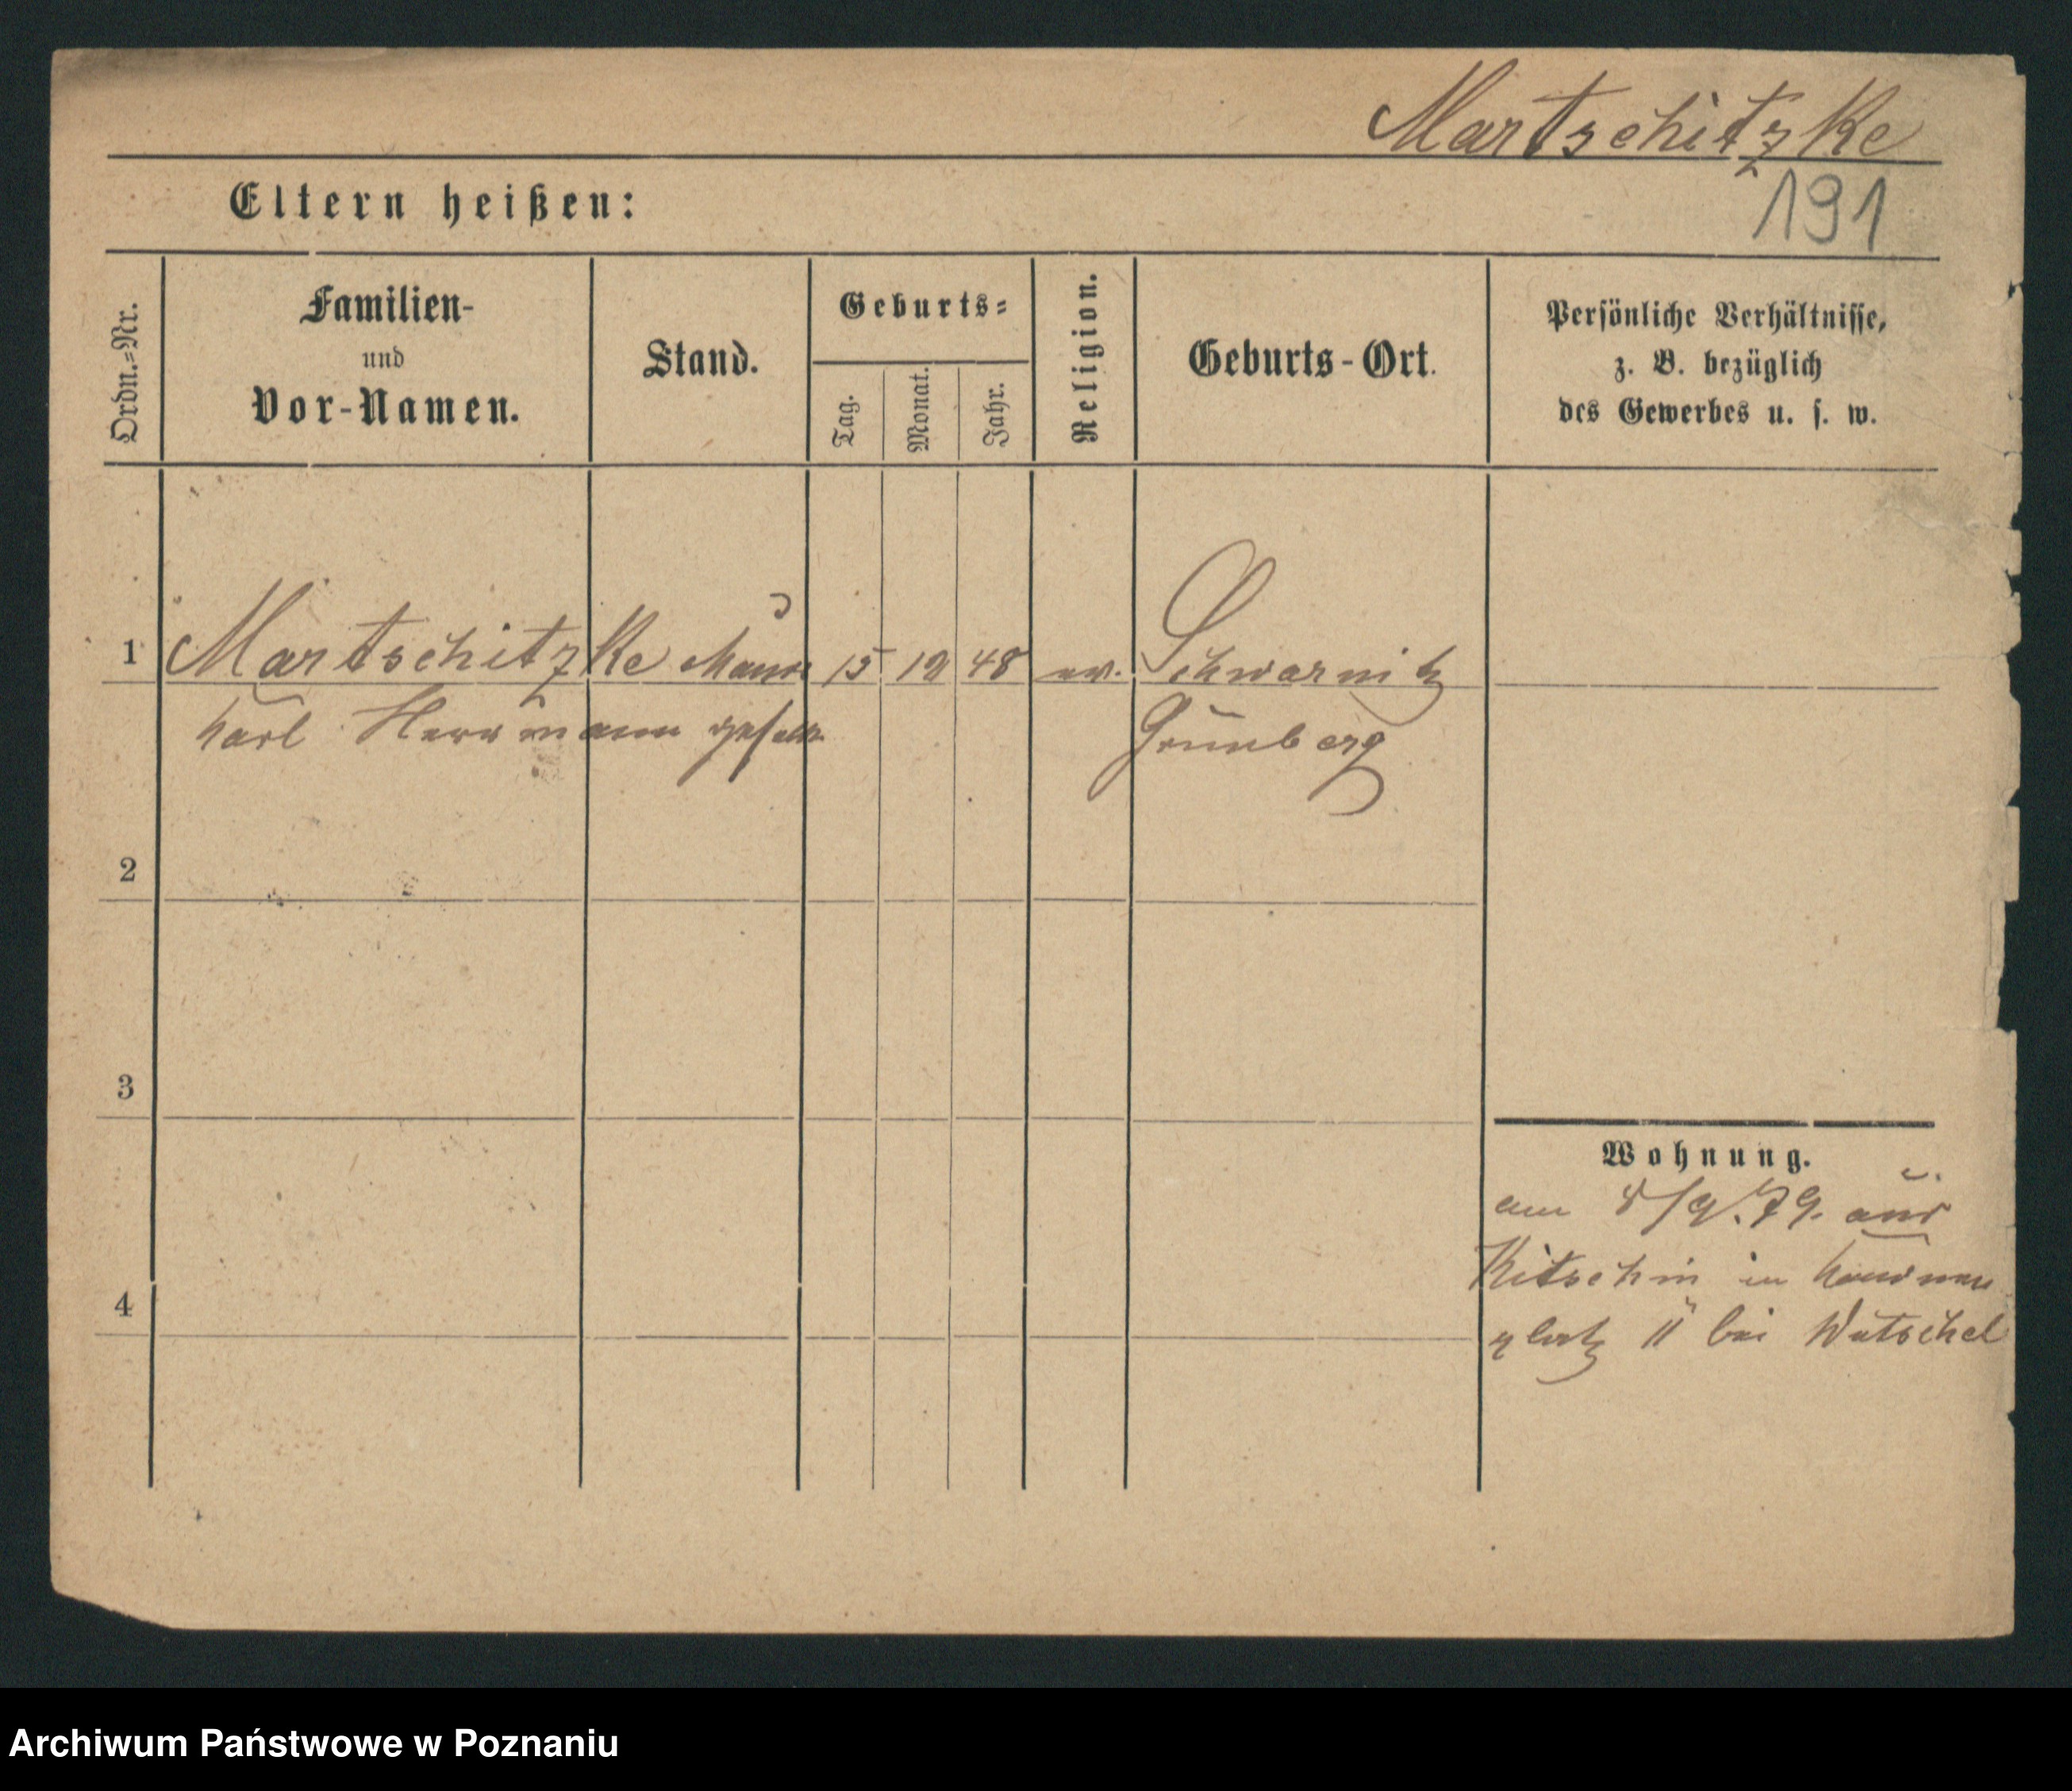 Martschitzke
191
Eltern heißen:
Ordn.=Nr.
Familien-
und
Vor-Namen.
Stand.
Geburts=
Tag.
Monat.
Jahr.
Religion.
Geburts-Ort.
Persönliche Verhältnisse,
z. B. bezüglich
des Gewerbes u. s. w.
1 Martschitzke Maurer 15 12 48 ev. Schwarmitz
Karl Herrmann gesell Grünberg
2
3
Wohnung.
am 8/9. 79. aus
Kitschin in
platz 11 bei Wutschel
4
Archiwum Państwowe w Poznaniu